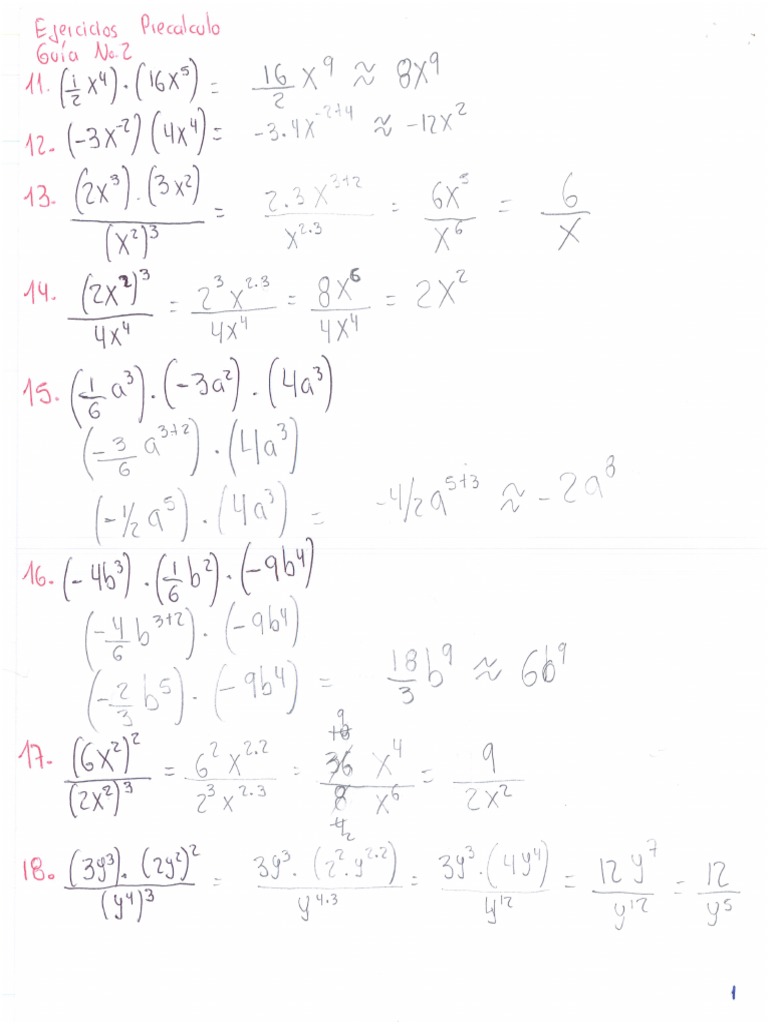 Ejercicios Precalculo
Guía No.2
11. (1/2 x⁴)·(16x⁵) = 16/2 x⁹ ≈ 8x⁹
12. (-3x⁻²)(4x⁴) = -3.4x⁻²⁺⁴ ≈ -12x²
13. (2x³).(3x²)/(x²)³ = 2.3x³⁺²/x²·³ = 6x⁵/x⁶ = 6/x
14. (2x²)³/4x⁴ = 2³x²·³/4x⁴ = 8x⁶/4x⁴ = 2x²
15. (1/6 a³)·(-3a²)·(4a³)
(-3/6 a³⁺²)·(4a³)
(-1/2 a⁵)·(4a³) = -4/2a⁵⁺³ ≈ -2a⁸
16. (-4b³)·(1/6 b²)·(-9b⁴)
(-4/6 b³⁺²)·(-9b⁴)
(-2/3 b⁵)·(-9b⁴) = 18/3 b⁹ ≈ 6b⁹
17. (6x²)²/(2x²)³ = 6²x²·²/2³x²·³ = 36x⁴/8x⁶ = 9/2x²
18. (3y³)·(2y²)²/(y⁴)³ = 3y³·(2²·y²·²)/y⁴·³ = 3y³·(4y⁴)/y¹² = 12y⁷/y¹² = 12/y⁵
1